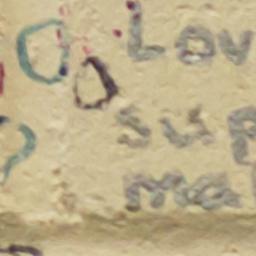 Lov
sup
ma